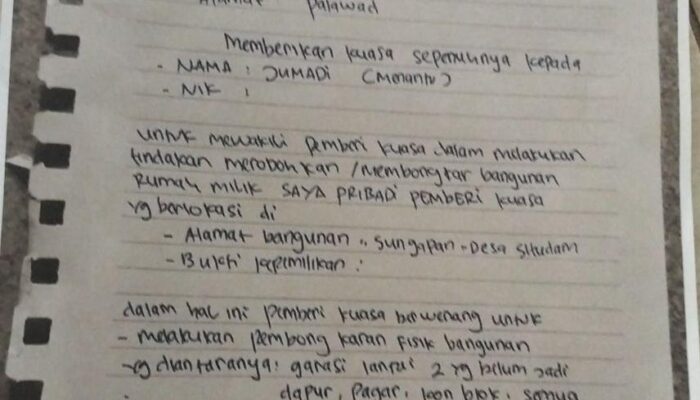 Alamat Palawad
Memberikan kuasa sepenuhnya kepada
- NAMA : JUMADi (Menantu)
- NIK :
untuk mewakili pemberi kuasa dalam melakukan
tindakan merobohkan / Membongkar bangunan
Rumah milik SAYA PRIBADI PEMBERI kuasa
yg berlokasi di
- Alamat bangunan : Sungapan - Desa
- Bukti kepemilikan :
dalam hal ini pemberi kuasa berwenang untuk
- melakukan pembong karan fisik bangunan
- yg diantaranya : garasi lantai 2 yg belum Jadi
dapur, pagar, con blok, semua